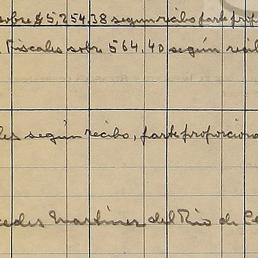 sobre $5,254.38 según recibo parte prop
Fiscales sobre 564.40 según recib
les según recibo, parte proporciona
cedes Martínez del Rio de Ca